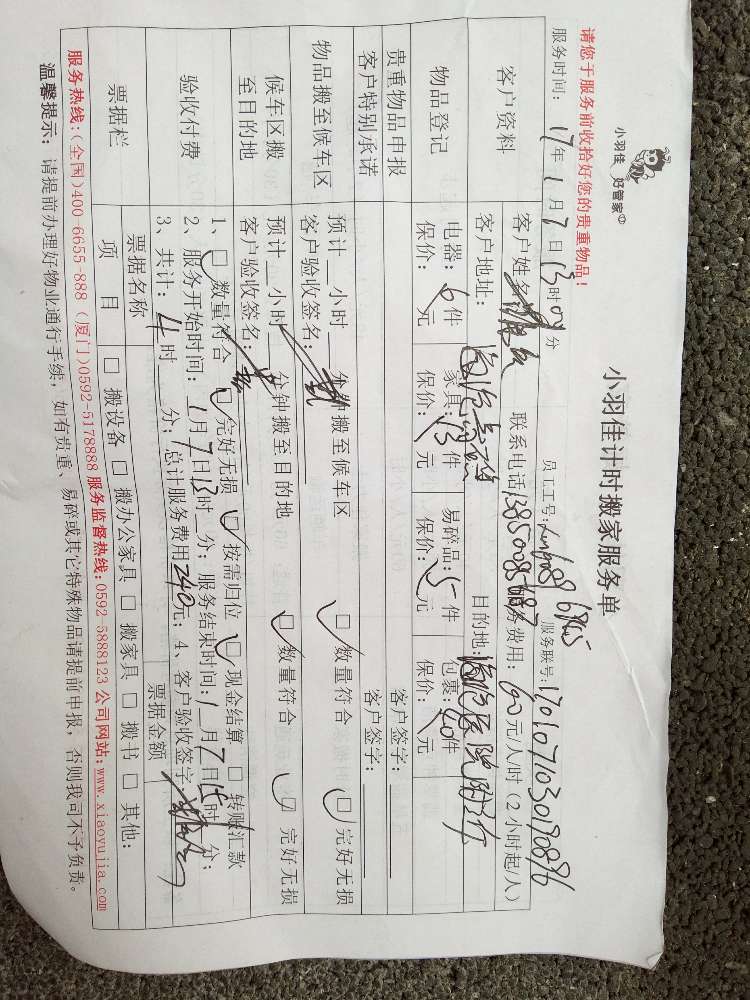 小羽佳 好管家
小羽佳计时搬家服务单
请您于服务前收拾好您的贵重物品！
员工工号: 服务联号: 1701071030190896
服务时间: 17年1月7日13时00分
客户资料 客户姓名: 联系电话: 服务费用: 60元/小时（2小时起/人）
客户地址: 目的地:
物品登记 电器: 6件 家具: 15件 易碎品: 5件 包裹: 20件
保价: 元 保价: 元 保价: 元 保价: 元
贵重物品申报 客户签字:
客户特别承诺 客户签字:
物品搬至候车区 预计 小时 分钟搬至候车区 □ 数量符合 □ 完好无损
客户验收签名:
候车区搬至目的地 预计 小时 分钟搬至目的地 □ 数量符合 □ 完好无损
客户验收签名:
验收付费 1、□ 数量符合 □ 完好无损 □ 按需归位 □ 现金结算 □ 转账汇款
2、服务开始时间: 1月7日13时 分; 服务结束时间: 1月7日15时 分;
3、共计: 4时 分; 总计服务费用240元; 4、客户验收签字
票据栏 票据名称 票据金额
项目 □ 搬设备 □ 搬办公家具 □ 搬家具 □ 搬书 □ 其他:
服务热线:(全国)400 6655-888 (厦门)0592-5178888 服务监督热线:0592 5888123 公司网站:www.xiaoyujia.com
温馨提示: 请提前办理好物业通行手续, 如有贵重、易碎或其它特殊物品请提前申报, 否则我司不予负责。